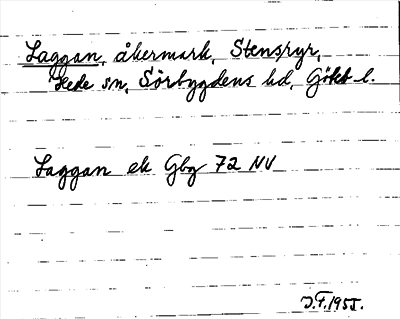 Laggan, åkermark, Stenspyr,
Hede sn, Sörbygdens hd, Gökb l.
Laggan ek Gbg 72 NV
J.F. 1955.